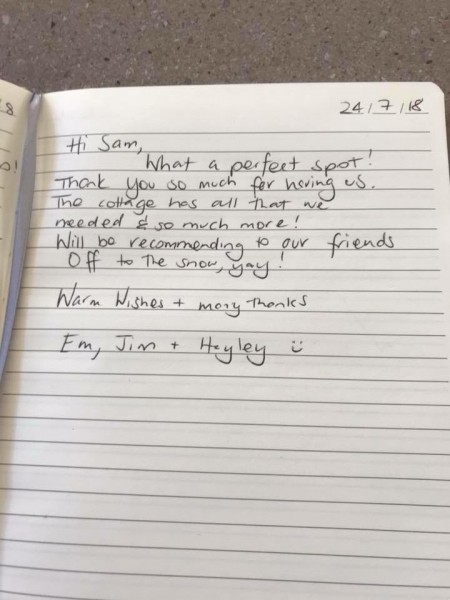 8
24/7/18
Hi Sam,
What a perfect spot!
o!
Thank you so much for having us.
The cottage has all that we
needed & so much more!
Will be recommending to our friends
Off to the snow, yay!
Warm Wishes + many thanks
Em, Jim + Hayley ü